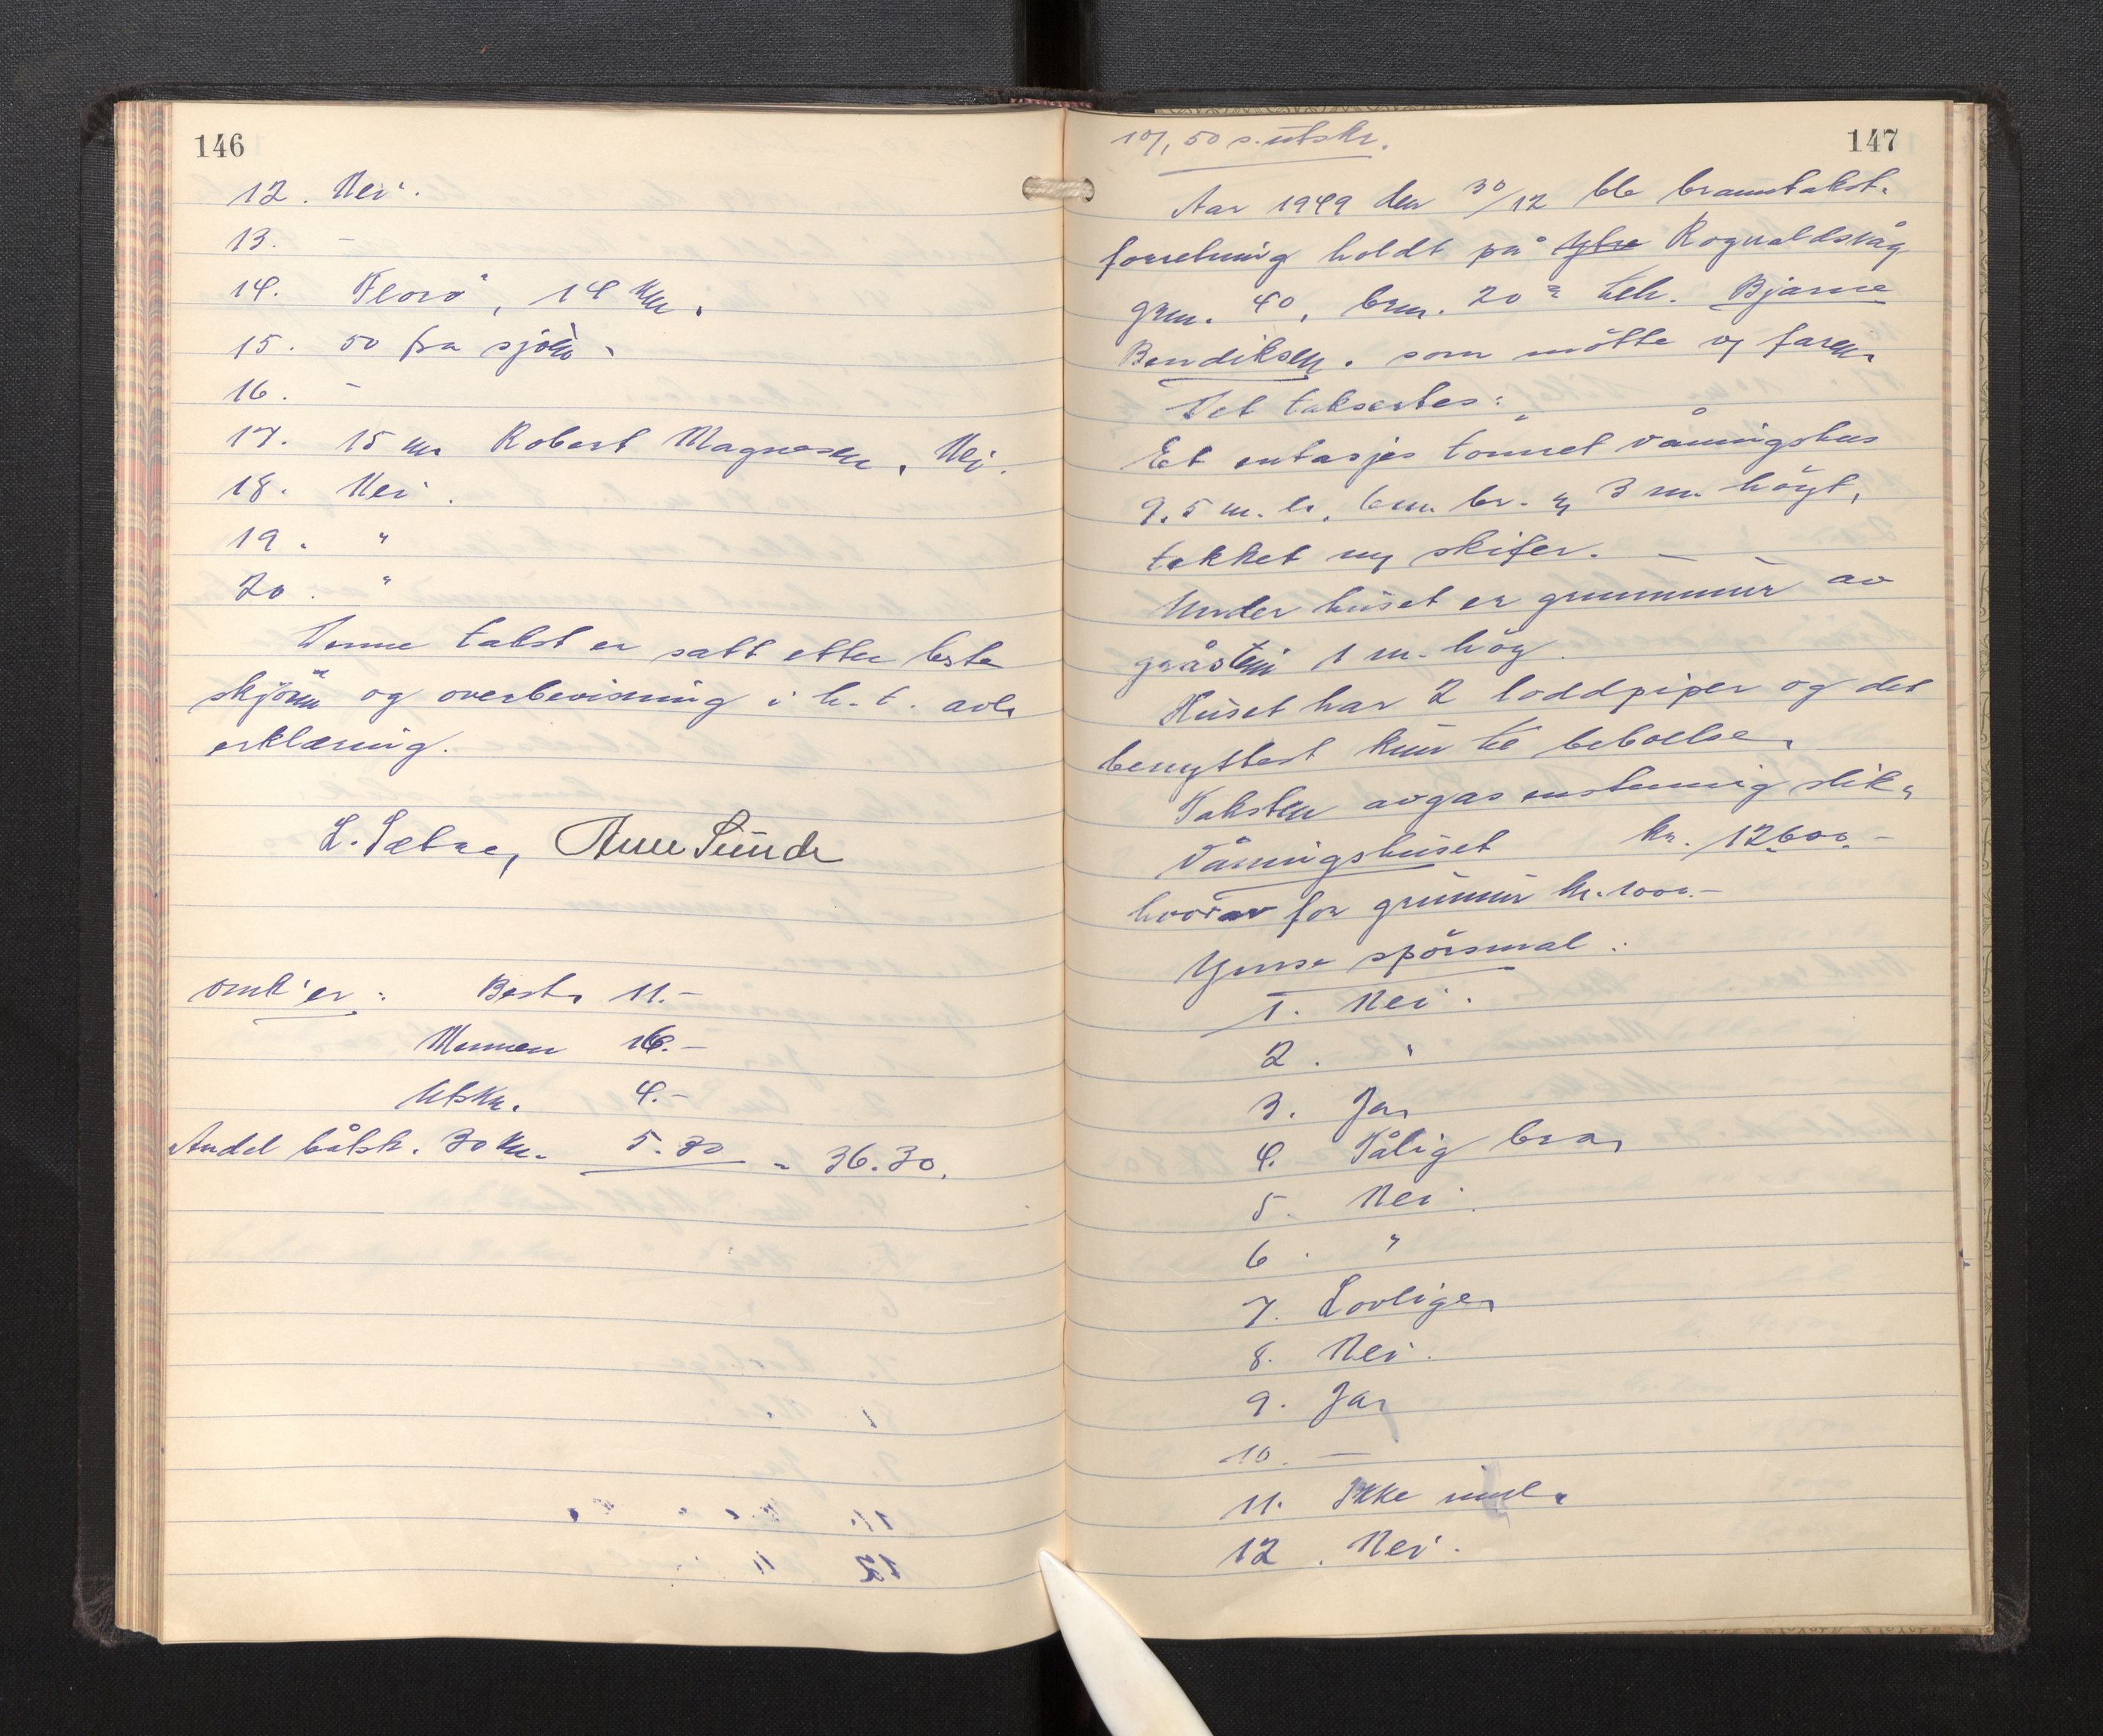 146
12. Nei.
13. –
14. Florø, 14 km.
15. 50 fra sjøen.
16. –
17. 15 m Robert Magnesen, Nei.
18. Nei.
19. "
20. "
Denne takst er satt etter beste
skjønn og overbevisning i h. t. avl.
erklæring.
L. Sætre, Arne Sunde
omk'er: Best. 11.–
Mennen 16.–
Utskr. 4.–
Andel båtsk. 30 km. 5.30 = 36.30.
147
10/1 50 s. utskr.
Aar 1949 den 30/12 ble branntakst-
forretning holdt på Ytre Rognaldsvåg
gnr. 40, brn. 20 tilh. Bjarne
Bendiksen. som møtte og faren.
Det taksertes:
Et entasjes tømret våningshus
9.5 m. l., 6 m. br. og 3 m. høyt,
tekket m/ skifer. – –
Under huset er grunnmur av
gråstein 1 m. høy.
Huset har 2 loddpiper og det
benyttest kun til beboelse.
Taksten avgas enstemmig slik.
Våningshuset kr. 12.600.–
hvorav for grunmur kr. 1000.–
Ymse spørsmal:
1. Nei.
2. "
3. Ja.
4. Tålig bra.
5. Nei.
6. "
7. Lovlige.
8. Nei.
9. Ja.
10. —
11. Ikke innl.
12. Nei.